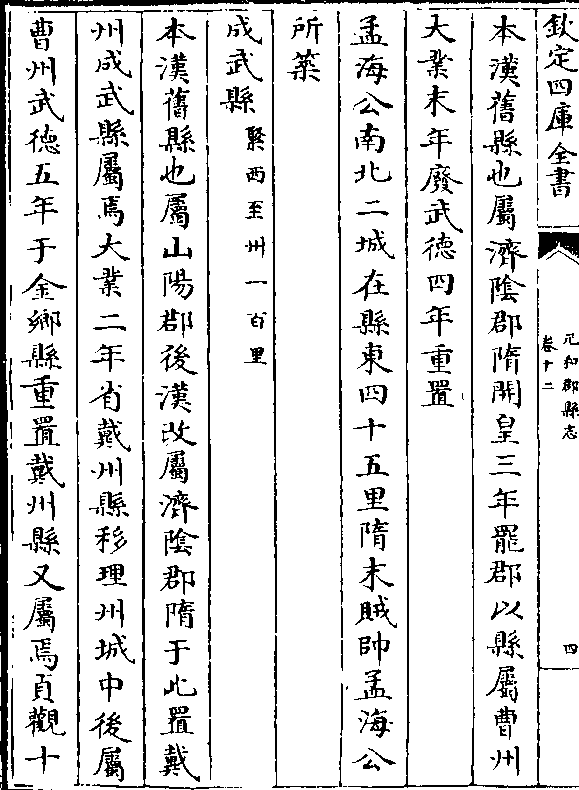 欽定四庫全書
元和郡縣志
卷十二
四
本漢舊縣也屬濟陰郡隋開皇三年罷郡以縣屬曹州
大業末年廢武德四年重置
孟海公南北二城在縣東四十五里隋末賊帥孟海公
所築
成武縣緊西至州一百里
本漢舊縣也屬山陽郡後漢改屬濟陰郡隋于此置戴
州成武縣屬焉大業二年省戴州縣移理州城中後屬
曹州武德五年于金鄉縣重置戴州縣又屬焉貞觀十